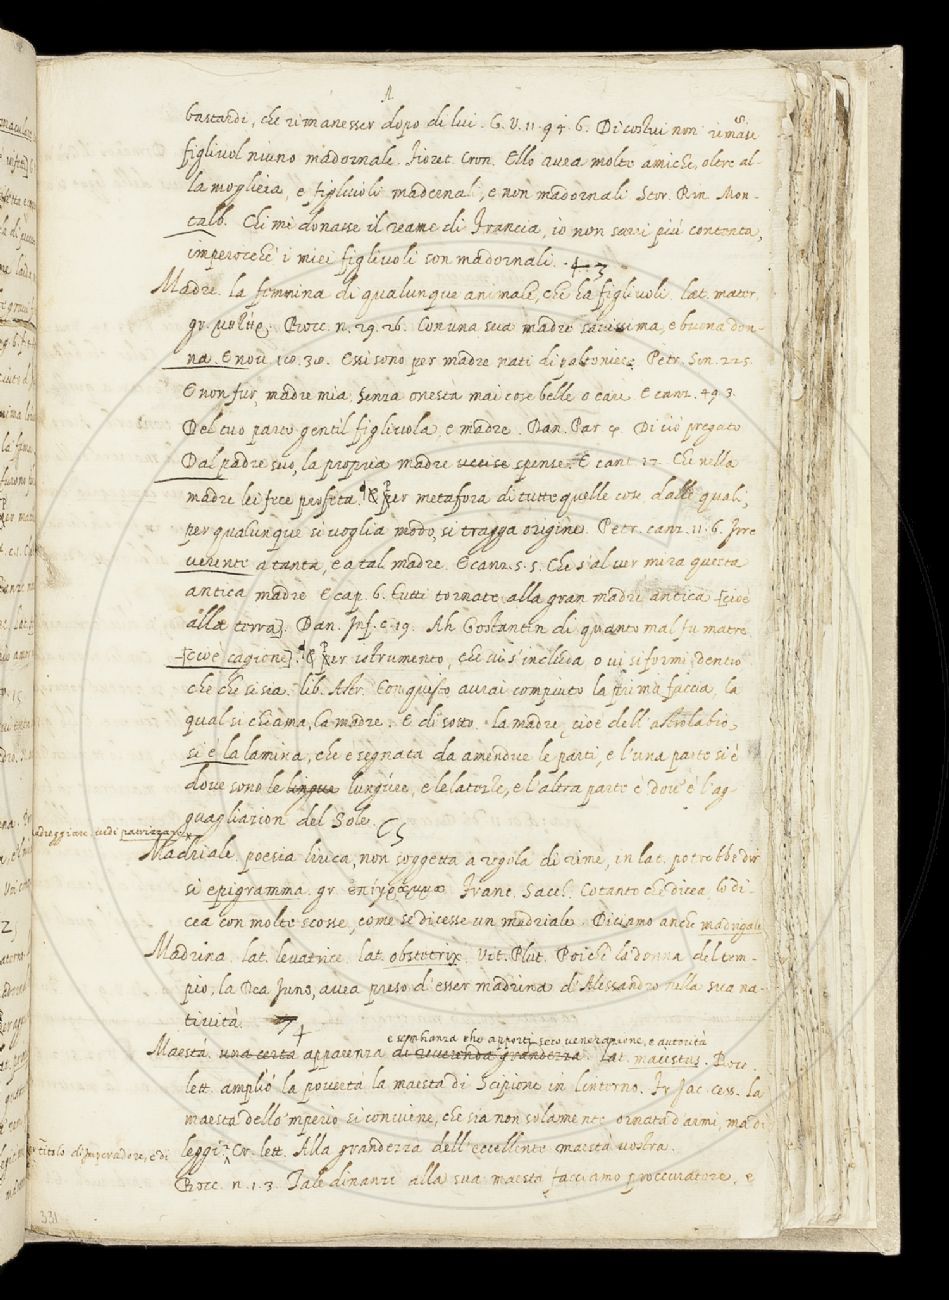 bastardi, che rimanesser dopo di lui. G. V. 11. 94. 6. Di costui non rimase
figliuol niuno madornale. Fioret. Cron. Ello avea molte amiche, oltre al-
la mogliera, e figliuoli madornali, e non madornali Stor. Rin. Mon-
talb. Chi mi donasse il reame di Francia, io non sarei più contenta,
imperocchè i miei figliuoli son madornali.
Madre. la femmina di qualunque animale, che ha figliuoli. lat. mater,
gr. μήτηρ. Bocc. n. 29. 26. Con una sua madre savissima, e buona don-
na. E nov. 100. 30. Essi sono per madre nati di paltoniere. Petr. Son. 225.
E non fur, madre mia, senza onestà mai cose belle o care. E canz. 49. 3.
Del tuo parto gentil figliuola, e madre. Dan. Par. 4. Di ciò pregato
Dal padre suo, la propria madre uccise spense. E cant. 17. Che nella
madre lei fece profeta. & Per metafora di tutte quelle cose, dalle quali,
per qualunque si voglia modo, si tragga origine. Petr. canz. 11. 6. Irre
verente a tanta, e a tal madre. E canz. 5. 5. Che s'al ver mira questa
antica madre E cap. 6. tutti tornate alla gran madre antica [cioè
alla terra]. Dan. Inf. c. 19. Ah Gostantin di quanto mal fu matre
[cioè cagione]. & Per istrumento, che in s'includa o vi si formi, dentro
che che si sia. lib. Astr. Con questo avrai compiuto la prima faccia, la
qual si chiama, la madre. E di sotto. la madre, cioè dell'astrolabio,
si è la lamina, che è segnata da amendue le parti, e l'una parte si è
dove sono le lingue lunghe, e le latora, e l'altra parte è dov'è l'ag-
guagliation del Sole.
adreggiare. vedi patrizzare
Madriale. poesia lirica, non soggetta a regola di rime, in lat. potrebbe dir
si epigramma. gr. ἐπίγραμμα Franc. Sacc. Cotanto che dicea, lo di-
cea con molte scosse, come se dicesse un madriale. Diciamo anche madrigale
Madrina. lat. levatrice, lat. obstetrix. Vit. Plut. Poichè la donna del tem-
pio, la Dea Juno, avea preso d'esser madrina d'Alessandro nella sua na-
tività.
e sembianza che apporti seco venerazione, e autorità
Maestà. una certa apparenza di reverenda grandezza. lat. maiestas. Bocc.
lett. ampliò la povertà la maestà di Scipione in linterno. Fr. Jac. Cess. la
maestà dello 'mperio si conviene, che sia non solamente ornata d'armi, ma di
titolo di Imperadore, e di
leggi. Cr. lett. Alla grandezza dell'eccellente maestà vostra.
Bocc. n. 1. 3. Tale dinanzi alla sua maestà facciamo proccuratore, e
331